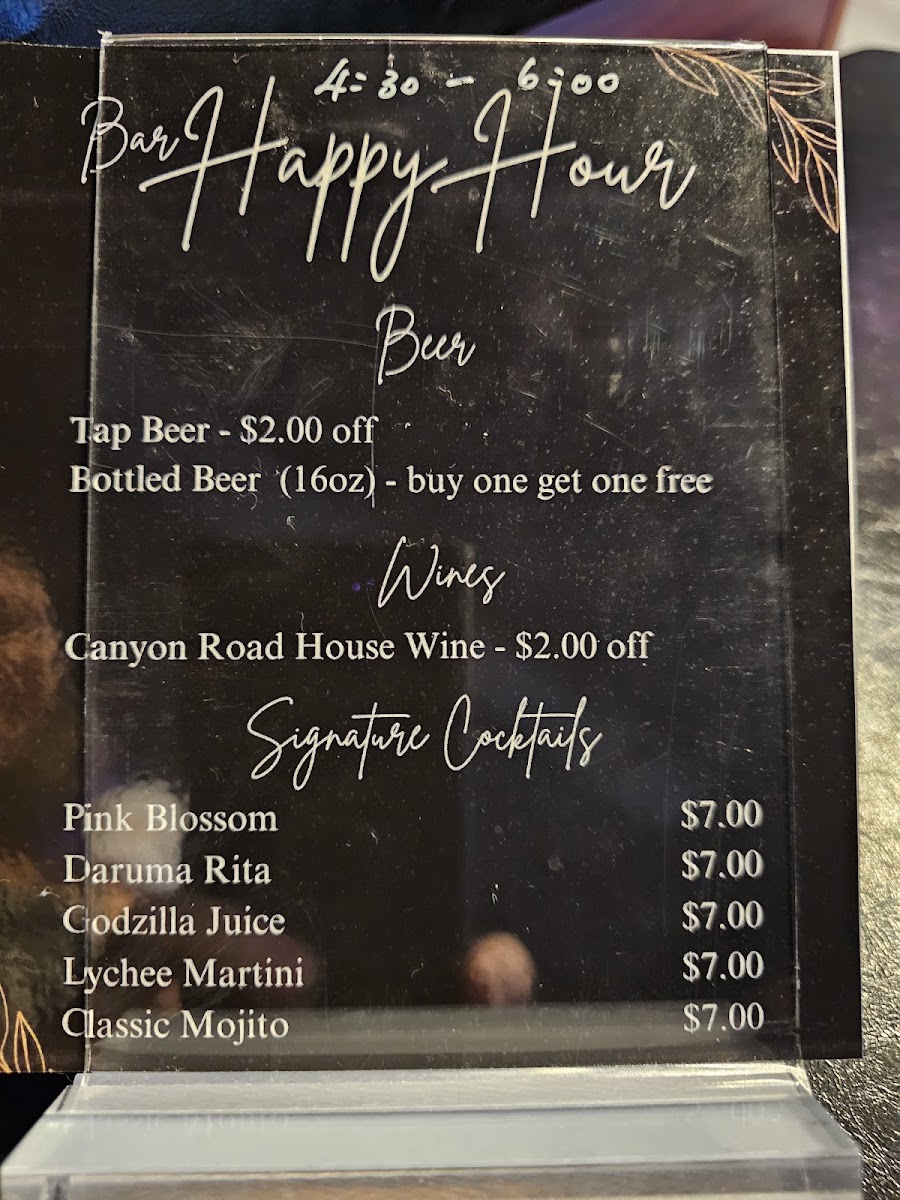 4:30 - 6:00
Bar Happy Hour
Beer
Tap Beer - $2.00 off
Bottled Beer (16oz) - buy one get one free
Wines
Canyon Road House Wine - $2.00 off
Signature Cocktails
Pink Blossom $7.00
Daruma Rita $7.00
Godzilla Juice $7.00
Lychee Martini $7.00
Classic Mojito $7.00